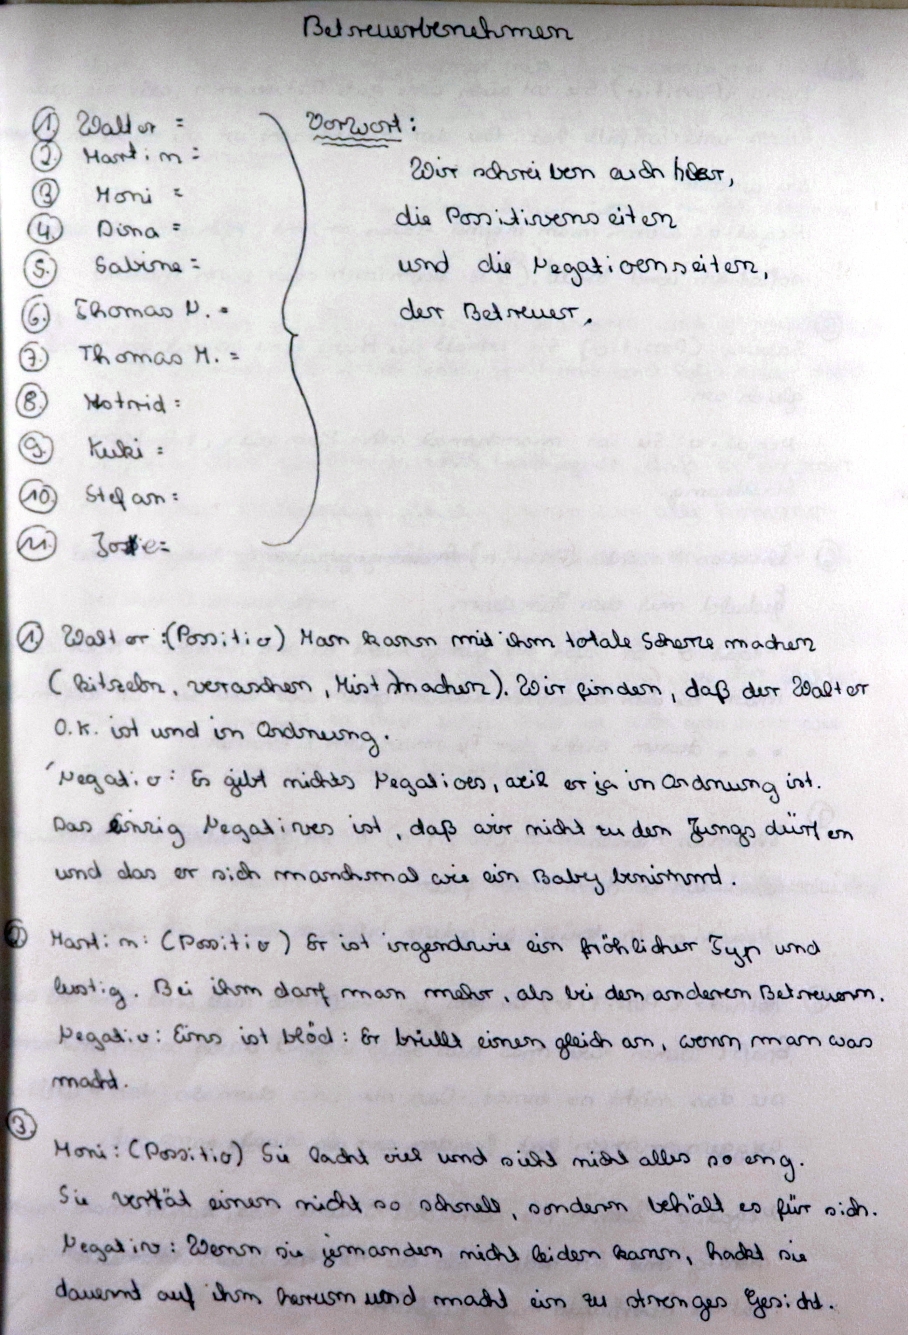 Betreuerbenehmen
1. Walter =
2. Martin =
3. Moni =
4. Dina =
5. Sabine =
6. Thomas N. =
7. Thomas M. =
8. Astrid =
9. Kuki =
10. Stefan =
11. =
Vorwort:
Wir schreiben euch hier,
die Possitivenseiten
und die Negativenseiten,
der Betreuer.
1. Walter: (Possitiv) Man kann mit ihm totale Scherze machen
(kitzeln, veraschen, Mist machen). Wir finden, daß der Walter
O.K. ist und in Ordnung.
Negativ: Es gibt nichts Negatives, weil er ja in Ordnung ist.
Das einzig Negatives ist, daß wir nicht zu den Jungs dürfen
und das er sich manchmal wie ein Baby benimmt.
2. Martin: (Possitiv) Er ist irgendwie ein fröhlicher Typ und
lustig. Bei ihm darf man mehr, als bei den anderen Betreuern.
Negativ: Eins ist blöd: Er brüllt einen gleich an, wenn man was
macht.
3.
Moni: (Possitiv) Sie lacht viel und sieht nicht alles so eng.
Sie verrät einen nicht so schnell, sondern behält es für sich.
Negativ: Wenn sie jemanden nicht leiden kann, hackt sie
dauernt auf ihm herum und macht ein zu strenges Gesicht.